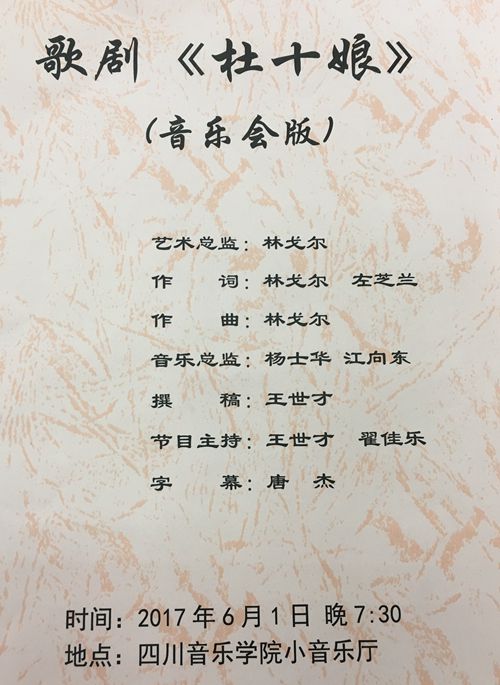 歌剧《杜十娘》
（音乐会版）
艺术总监：林戈尔
作　词：林戈尔　左芝兰
作　曲：林戈尔
音乐总监：杨士华 江向东
撰　稿：王世才
节目主持：王世才　翟佳乐
字　幕：唐　杰
时间：2017年6月1日 晚7:30
地点：四川音乐学院小音乐厅